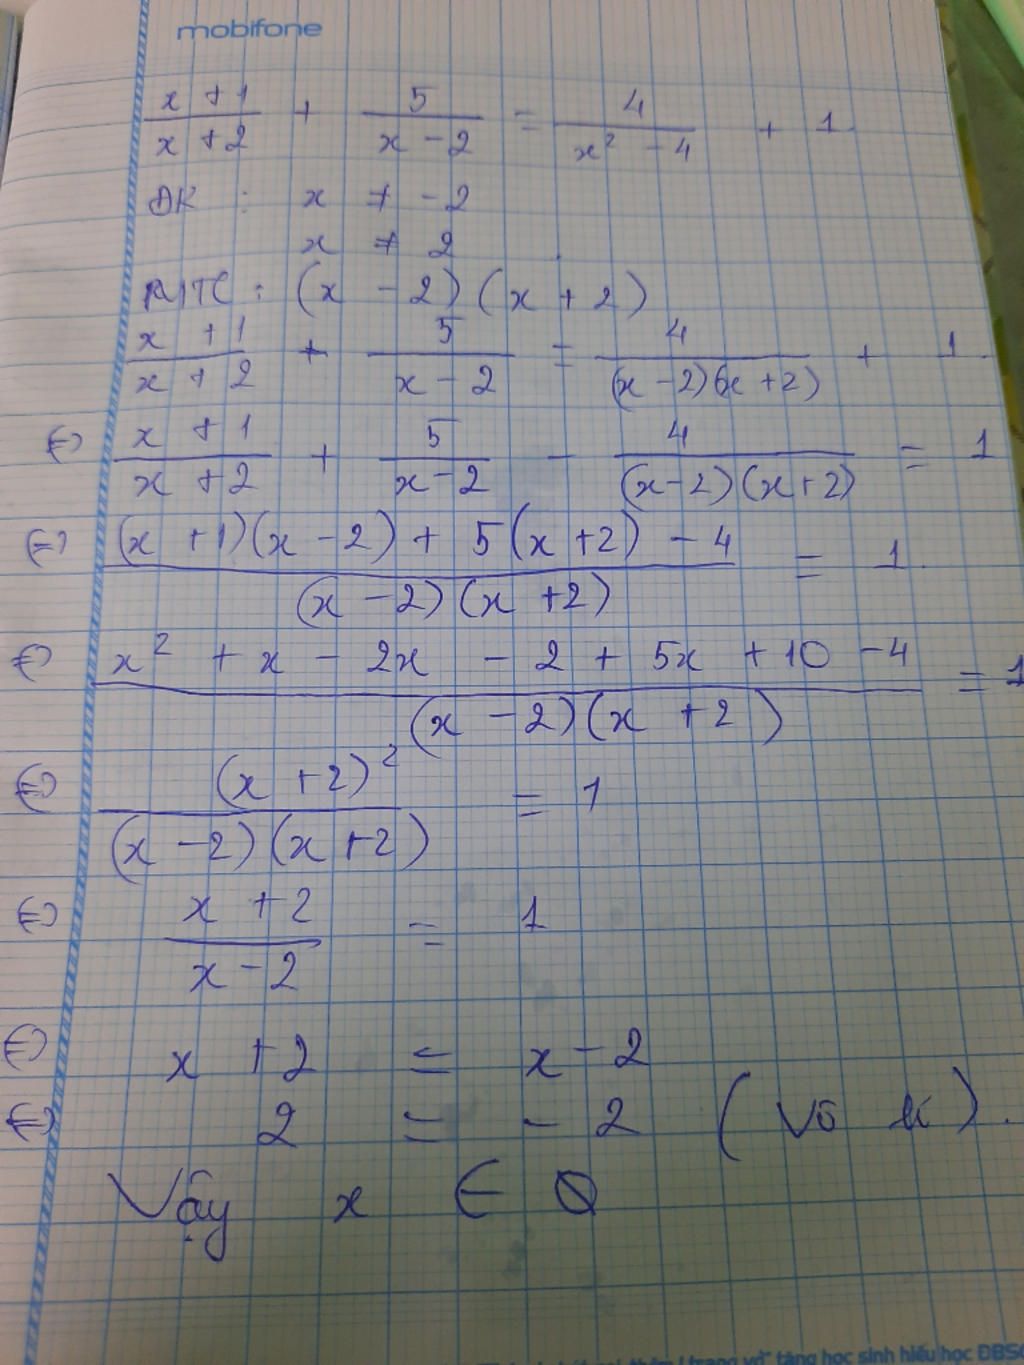 mobifone
x + 1 / x + 2 + 5 / x - 2 = 4 / x² - 4 + 1.
ĐK : x ≠ -2
x ≠ 2
MTC : (x - 2) (x + 2)
x + 1 / x + 2 + 5 / x - 2 = 4 / (x - 2)(x + 2) + 1.
⇔ x + 1 / x + 2 + 5 / x - 2 - 4 / (x - 2)(x + 2) = 1
⇔ (x + 1)(x - 2) + 5(x + 2) - 4 / (x - 2)(x + 2) = 1.
⇔ x² + x - 2x - 2 + 5x + 10 - 4 / (x - 2)(x + 2) = 1
⇔ (x + 2)² / (x - 2)(x + 2) = 1
⇔ x + 2 / x - 2 = 1
⇔ x + 2 = x - 2
⇔ 2 = - 2 (Vô lí).
Vậy x ∈ ∅
tặng học sinh hiếu học